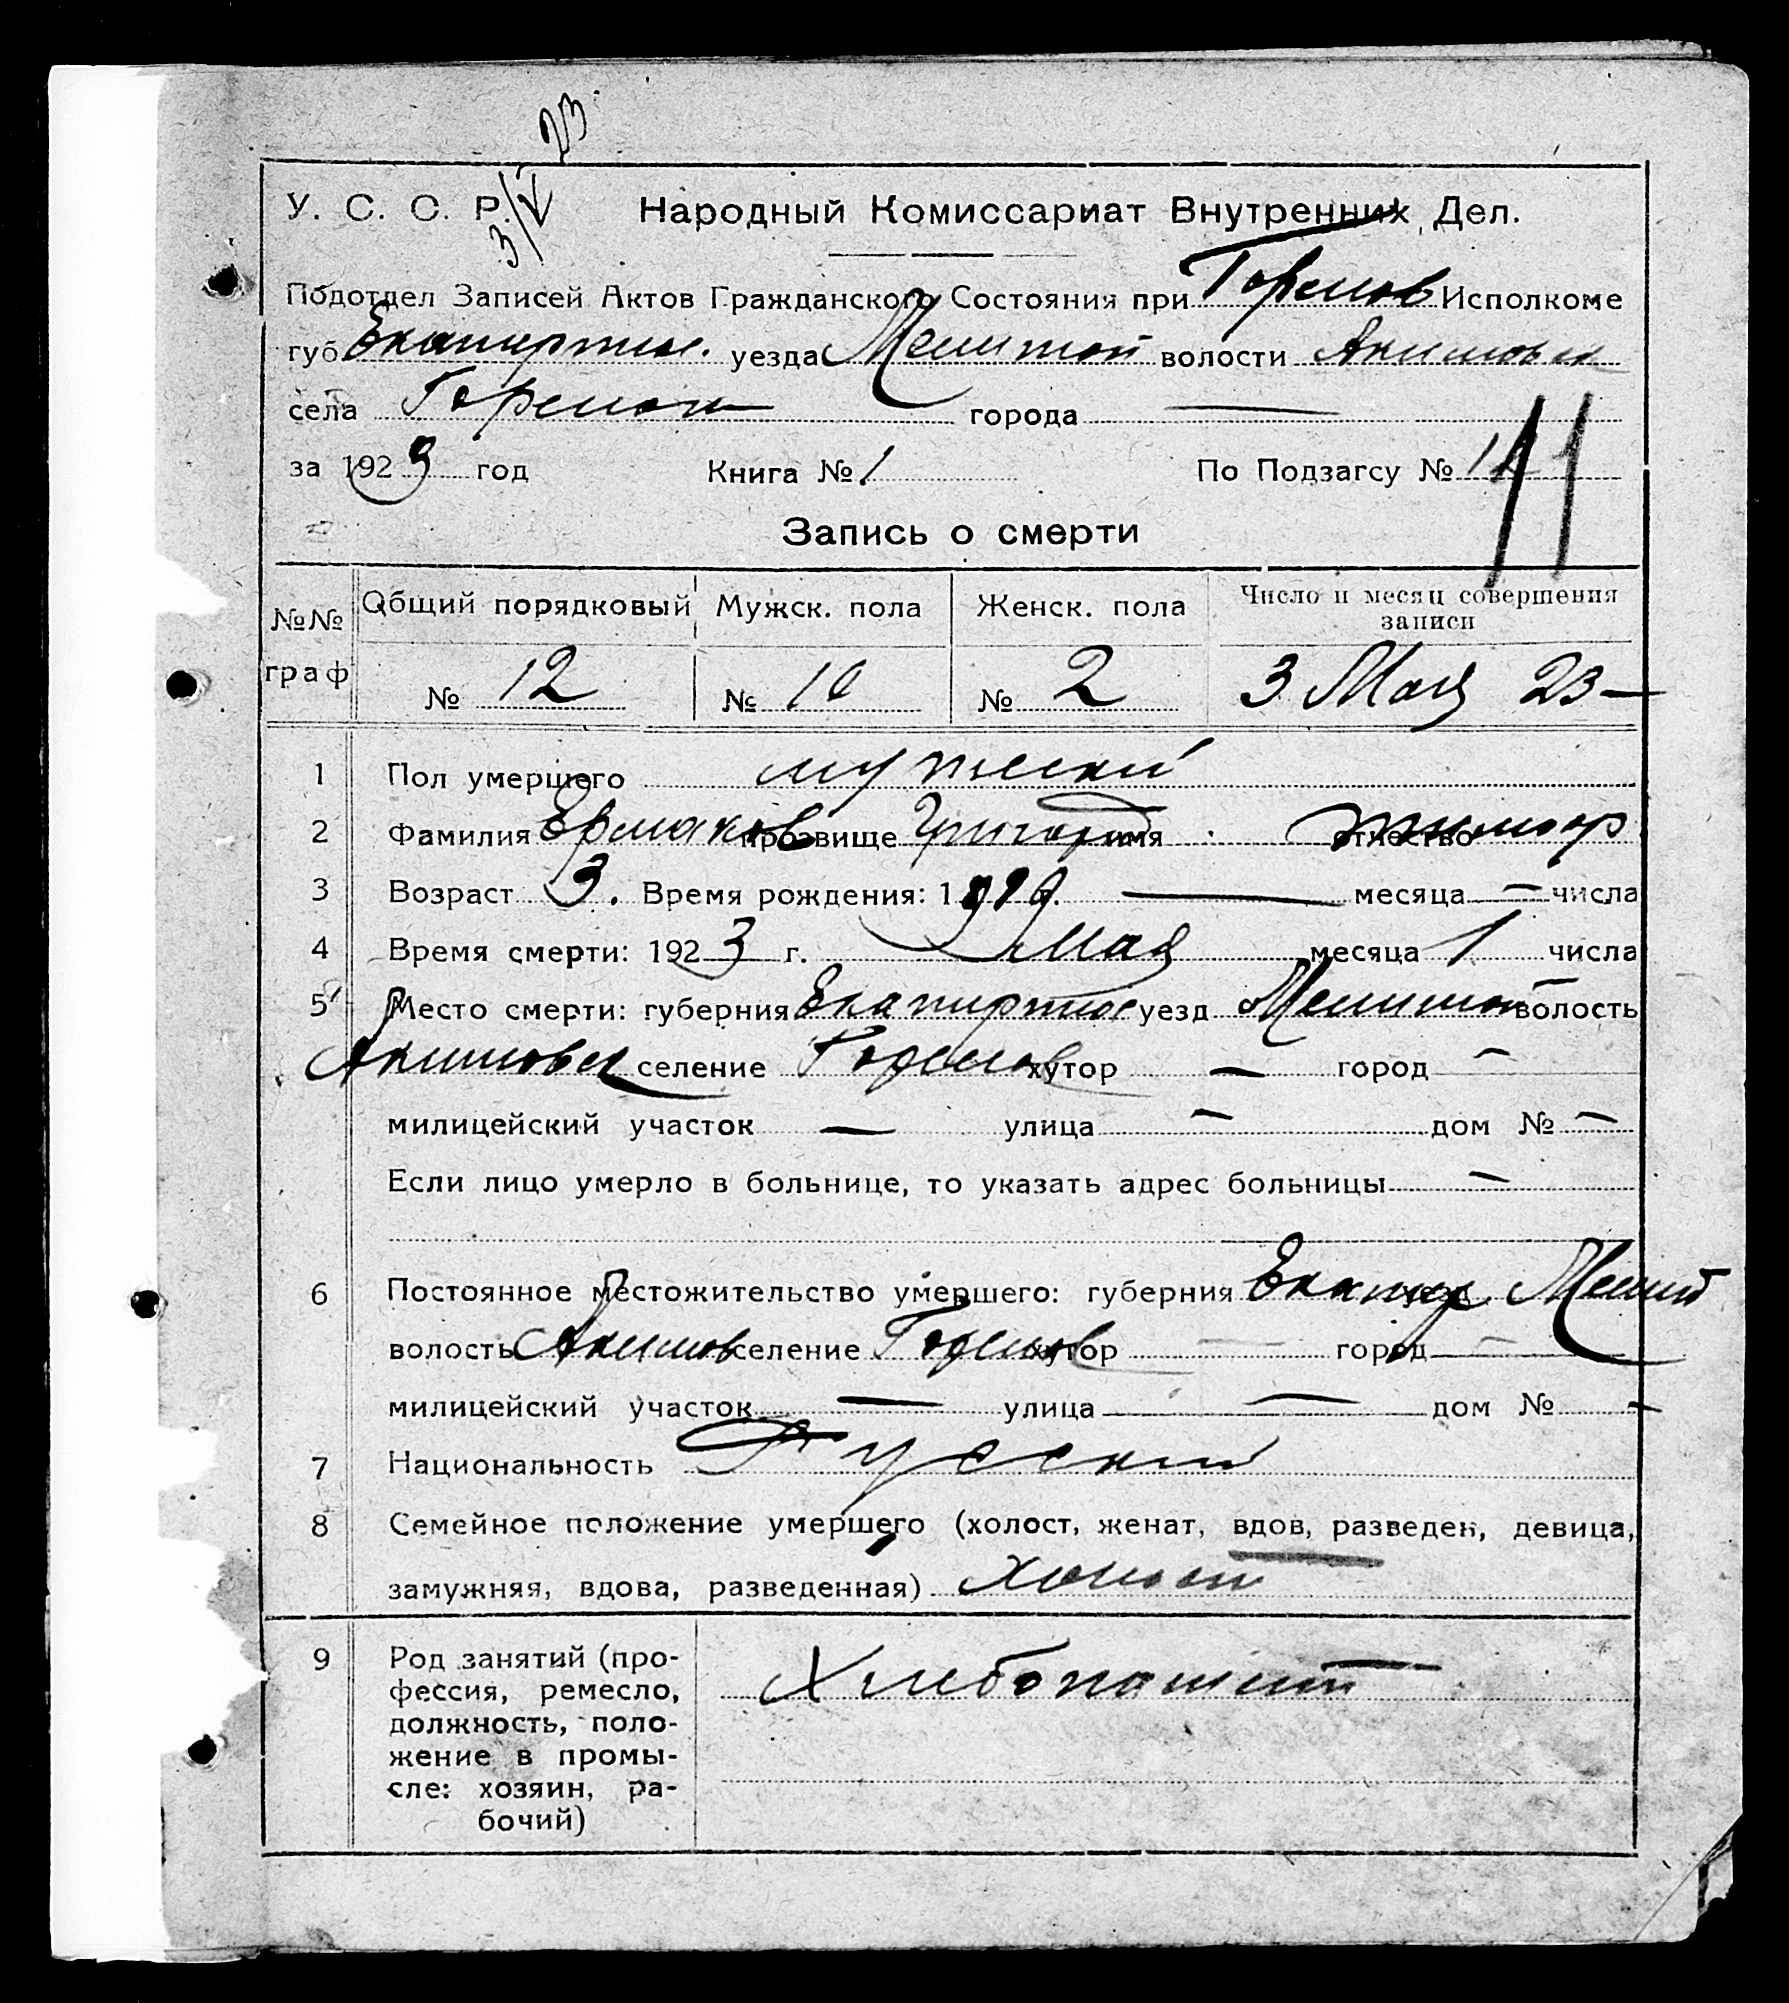 23
3/V
У. С. С. Р. Народный Комиссариат Внутренних Дел.
Подотдел Записей Актов Гражданского Состояния при Горелов Исполкоме
губ Екатерин. уезда Мелитоп волости Акимовск
села Горелов города —
за 1923 год Книга № 1 По Подзагсу №
Запись о смерти
№№ граф Общий порядковый Мужск. пола Женск. пола Число и месяц совершения записи
№ 12 № 10 № 2 3 Мая 23 —
1 Пол умершего мужской
2 Фамилия Ермаков прозвище Григорий имя отчество
3 Возраст 3. Время рождения: 1919 г. — месяца — числа
4 Время смерти: 1923 г. Мая месяца 1 числа
5 Место смерти: губерния уезд Мелитоп волость
Акимовск селение Горелов хутор — город —
милицейский участок — улица — дом № —
Если лицо умерло в больнице, то указать адрес больницы —
6 Постоянное местожительство умершего: губерния Екатер уезд Мелит
волость Акимов селение Горелов хутор — город —
милицейский участок — улица — дом № —
7 Национальность Русский
8 Семейное положение умершего (холост, женат, вдов, разведен, девица,
замужняя, вдова, разведенная) холост
9 Род занятий (про- Хлебопашест
фессия, ремесло,
должность, поло-
жение в промы-
сле: хозяин, ра-
бочий)